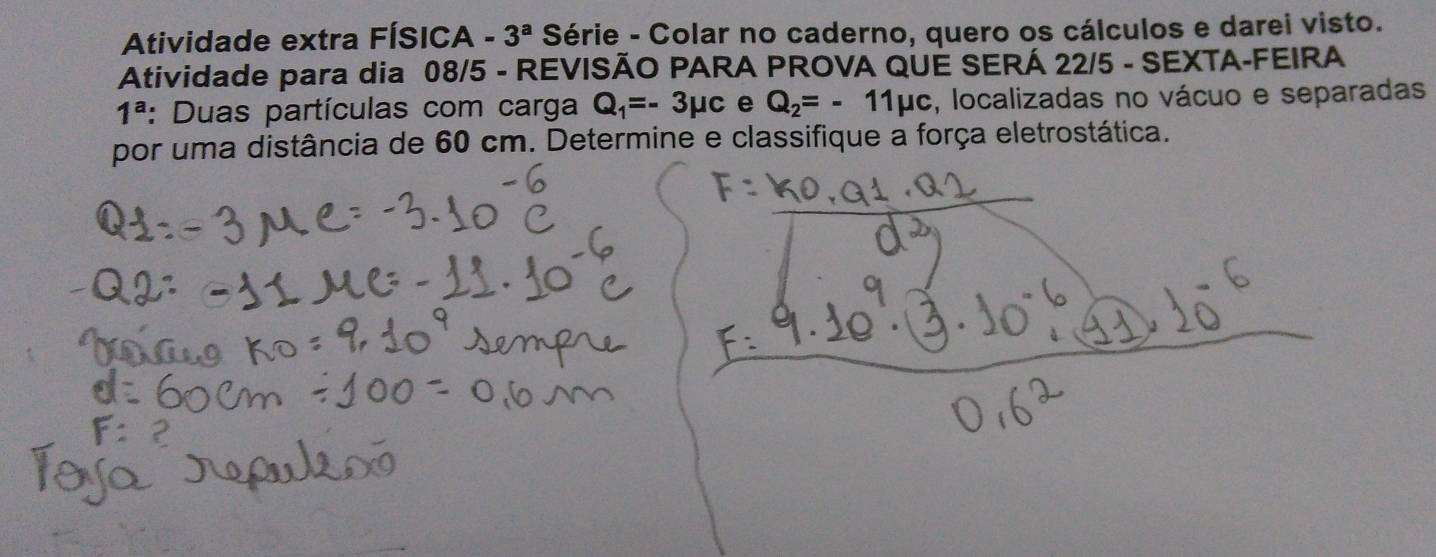 Atividade extra FÍSICA - 3ª Série - Colar no caderno, quero os cálculos e darei visto.
Atividade para dia 08/5 - REVISÃO PARA PROVA QUE SERÁ 22/5 - SEXTA-FEIRA
1ª: Duas partículas com carga Q₁=- 3µc e Q₂= - 11µc, localizadas no vácuo e separadas
por uma distância de 60 cm. Determine e classifique a força eletrostática.
Q1=-3 µc= -3.10⁻⁶ c
-Q2= -11 µc= -11.10⁻⁶ c
vácuo K0 = 9.10⁹ sempre
d= 60cm ÷100 = 0,6 m
F= ?
repulsão
F= K0.Q1.Q2
d²
F= 9.10⁹.3.10⁻⁶.11.10⁻⁶
0,6²